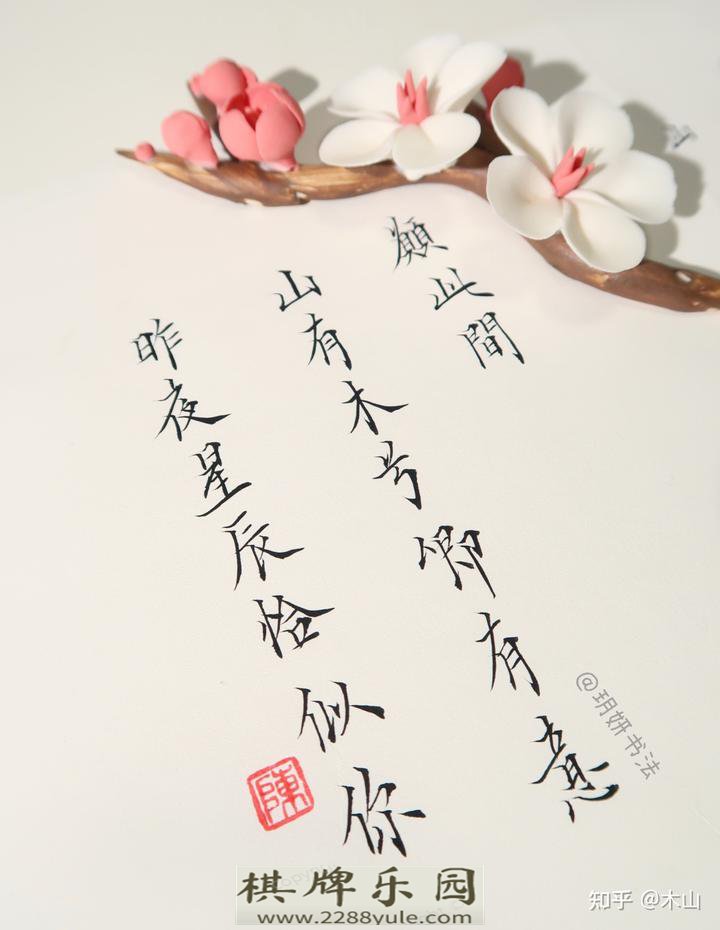 願此間
山有木兮卿有意
昨夜星辰恰似你
陳
@玥妍书法
棋牌乐园
www.2288yule.com
知乎 @木山